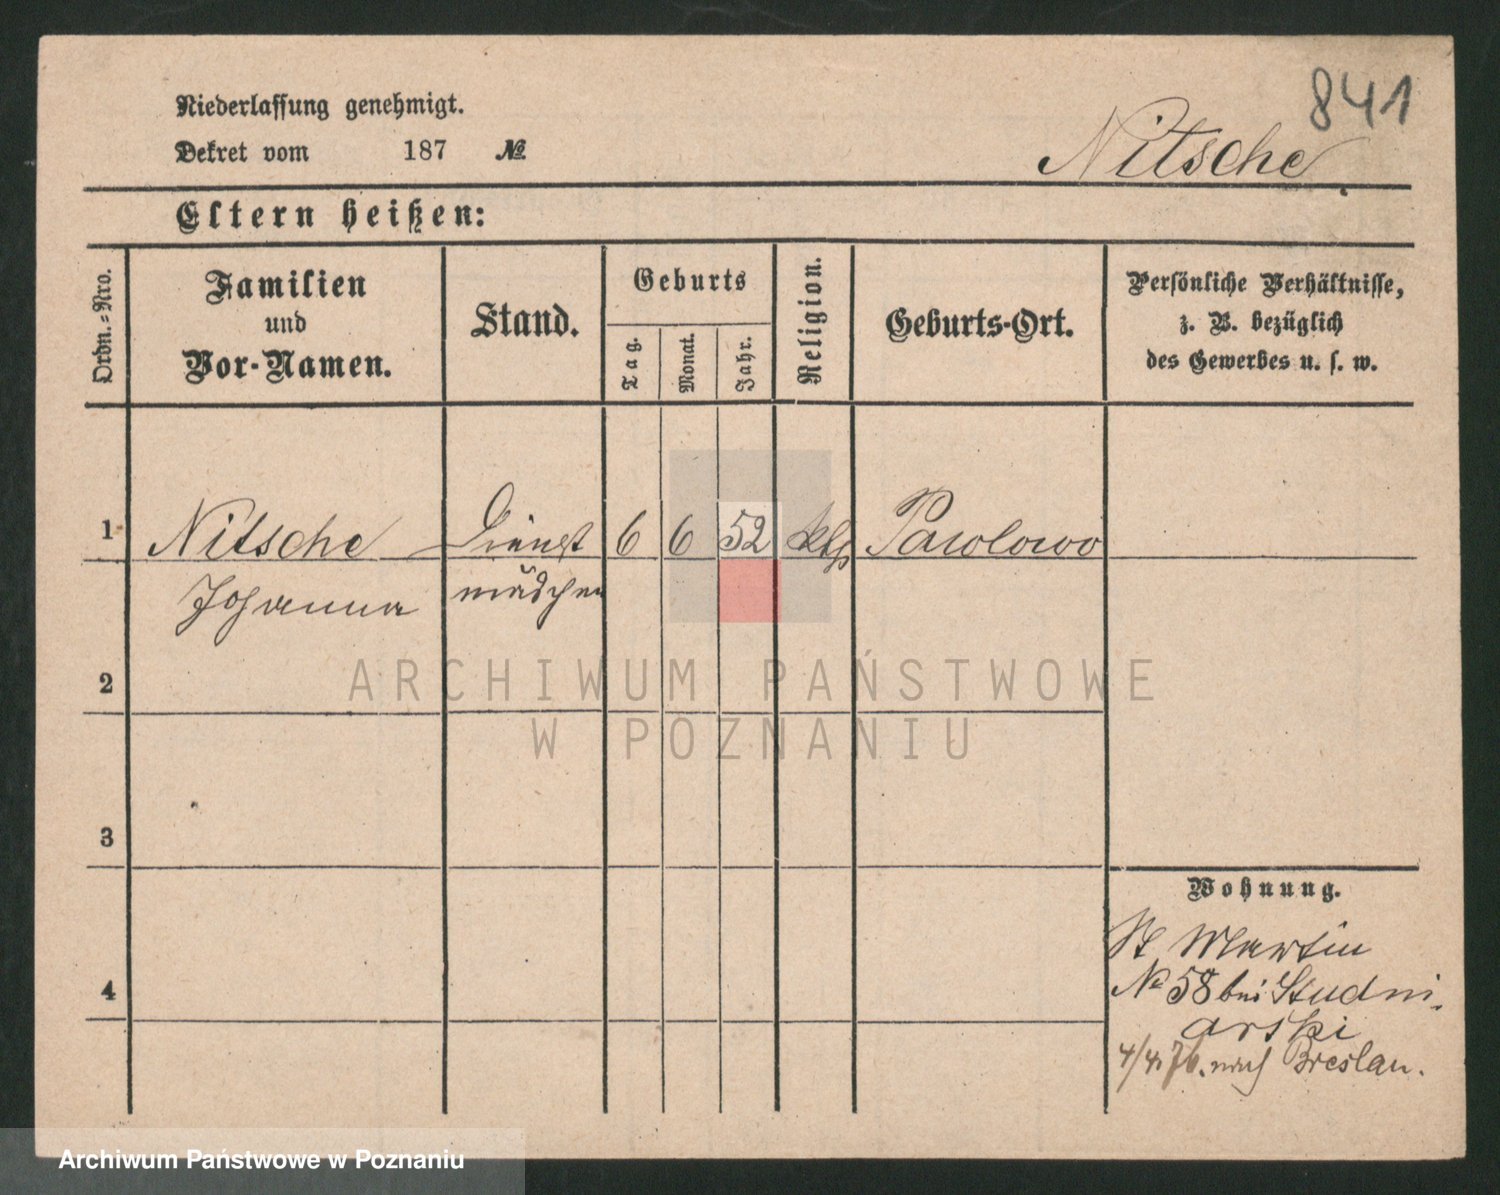 841
Niederlassung genehmigt.
Dekret vom 187 №
Nitsche
Eltern heißen:
Ordn.-Nro.
Familien
und
Vor-Namen.
Stand.
Geburts
Tag.
Monat.
Jahr.
Religion.
Geburts-Ort.
Persönliche Verhältnisse,
z. B. bezüglich
des Gewerbes u. s. w.
1 Nitsche Dienst 6 6 52 kth Pawlowo
Johanna mädchen
2
ARCHIWUM PAŃSTWOWE
W POZNANIU
3
Wohnung.
St Martin
4 № 58 bei Studni-
arski
4/4. 76. nach Breslau.
Archiwum Państwowe w Poznaniu